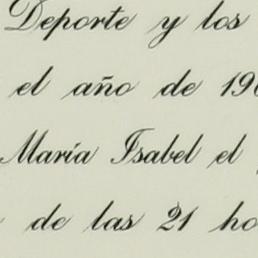 Deporte y los
el año de 19
María Isabel el
de las 21 ho